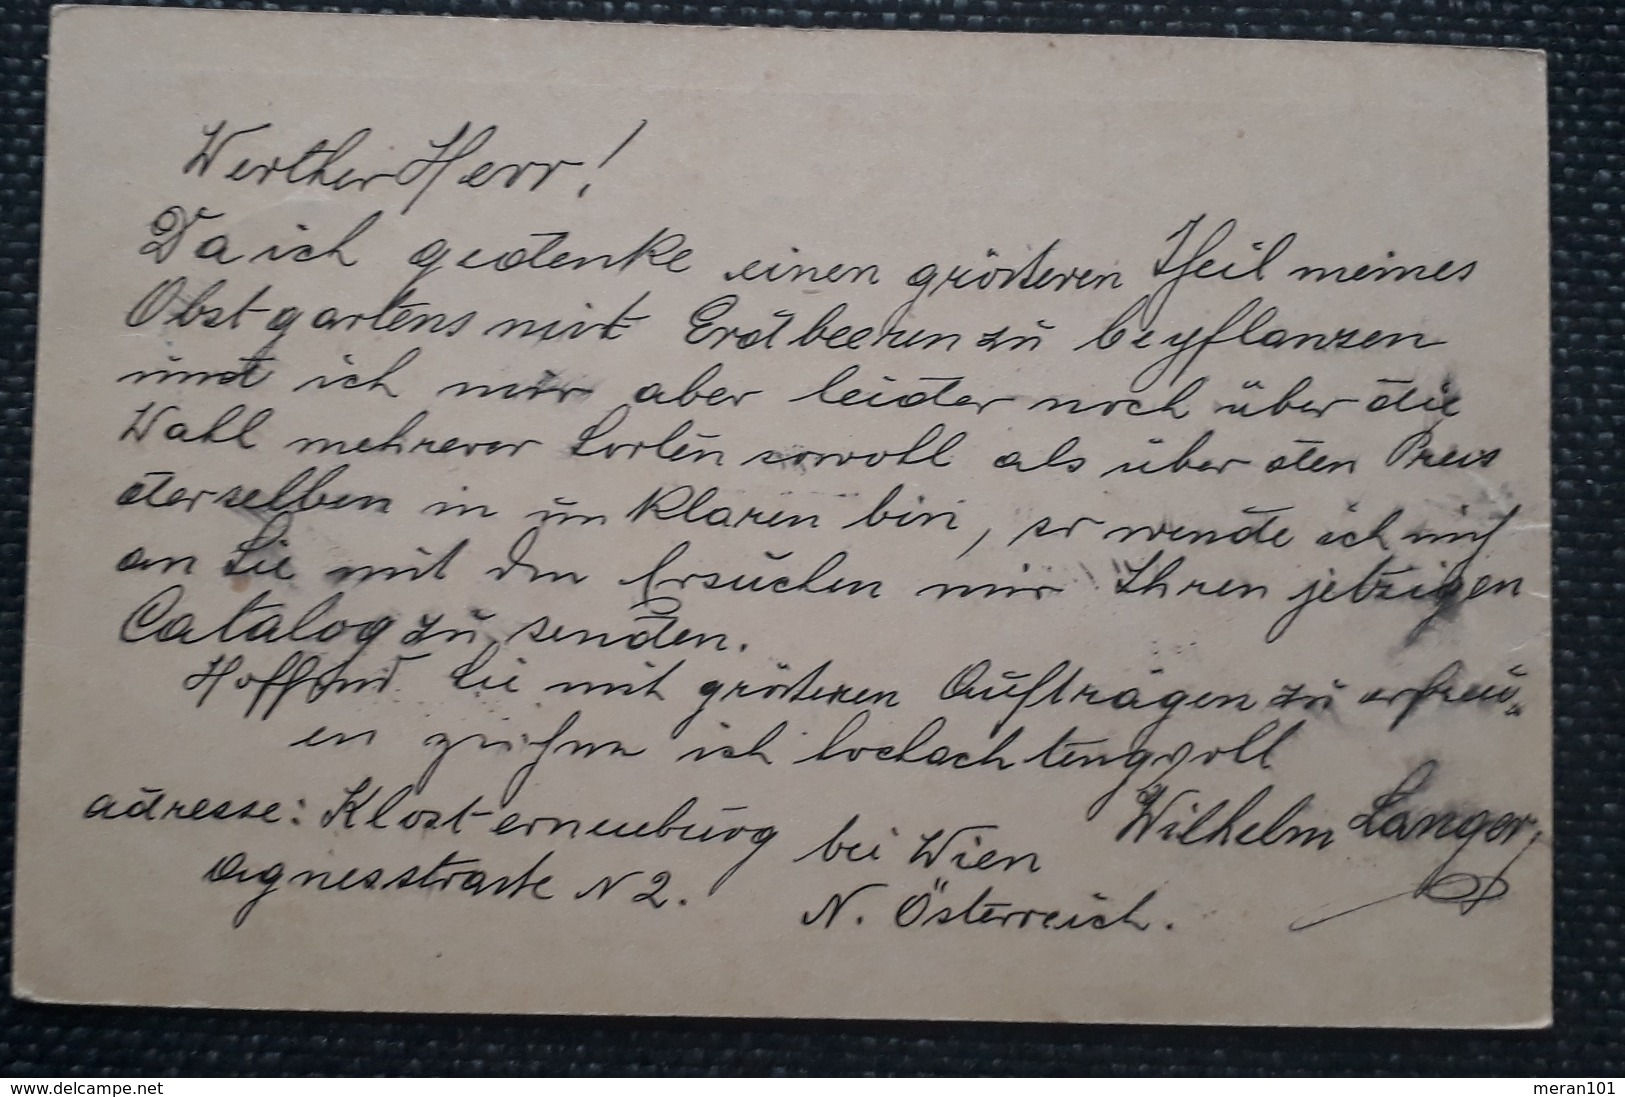 Werther Herr!
Da ich gedenke einen größeren Theil meines
Obstgartens mit Erdbeeren zu bepflanzen
und ich mir aber leider noch über die
Wahl mehrerer Sorten sowohl als über den Preis
derselben in unklaren bin, so wende ich mich
an Sie mit dem Ersuchen mir Ihren jetzigen
Catalog zu senden.
Hoffend Sie mit größeren Aufträgen zu erfreu„
en zeichne ich hochachtungvoll
adresse: Klosterneuburg bei Wien Wilhelm Langer,
Agnesstraße N 2. N. Österreich.
www.delcampe.net
meran101